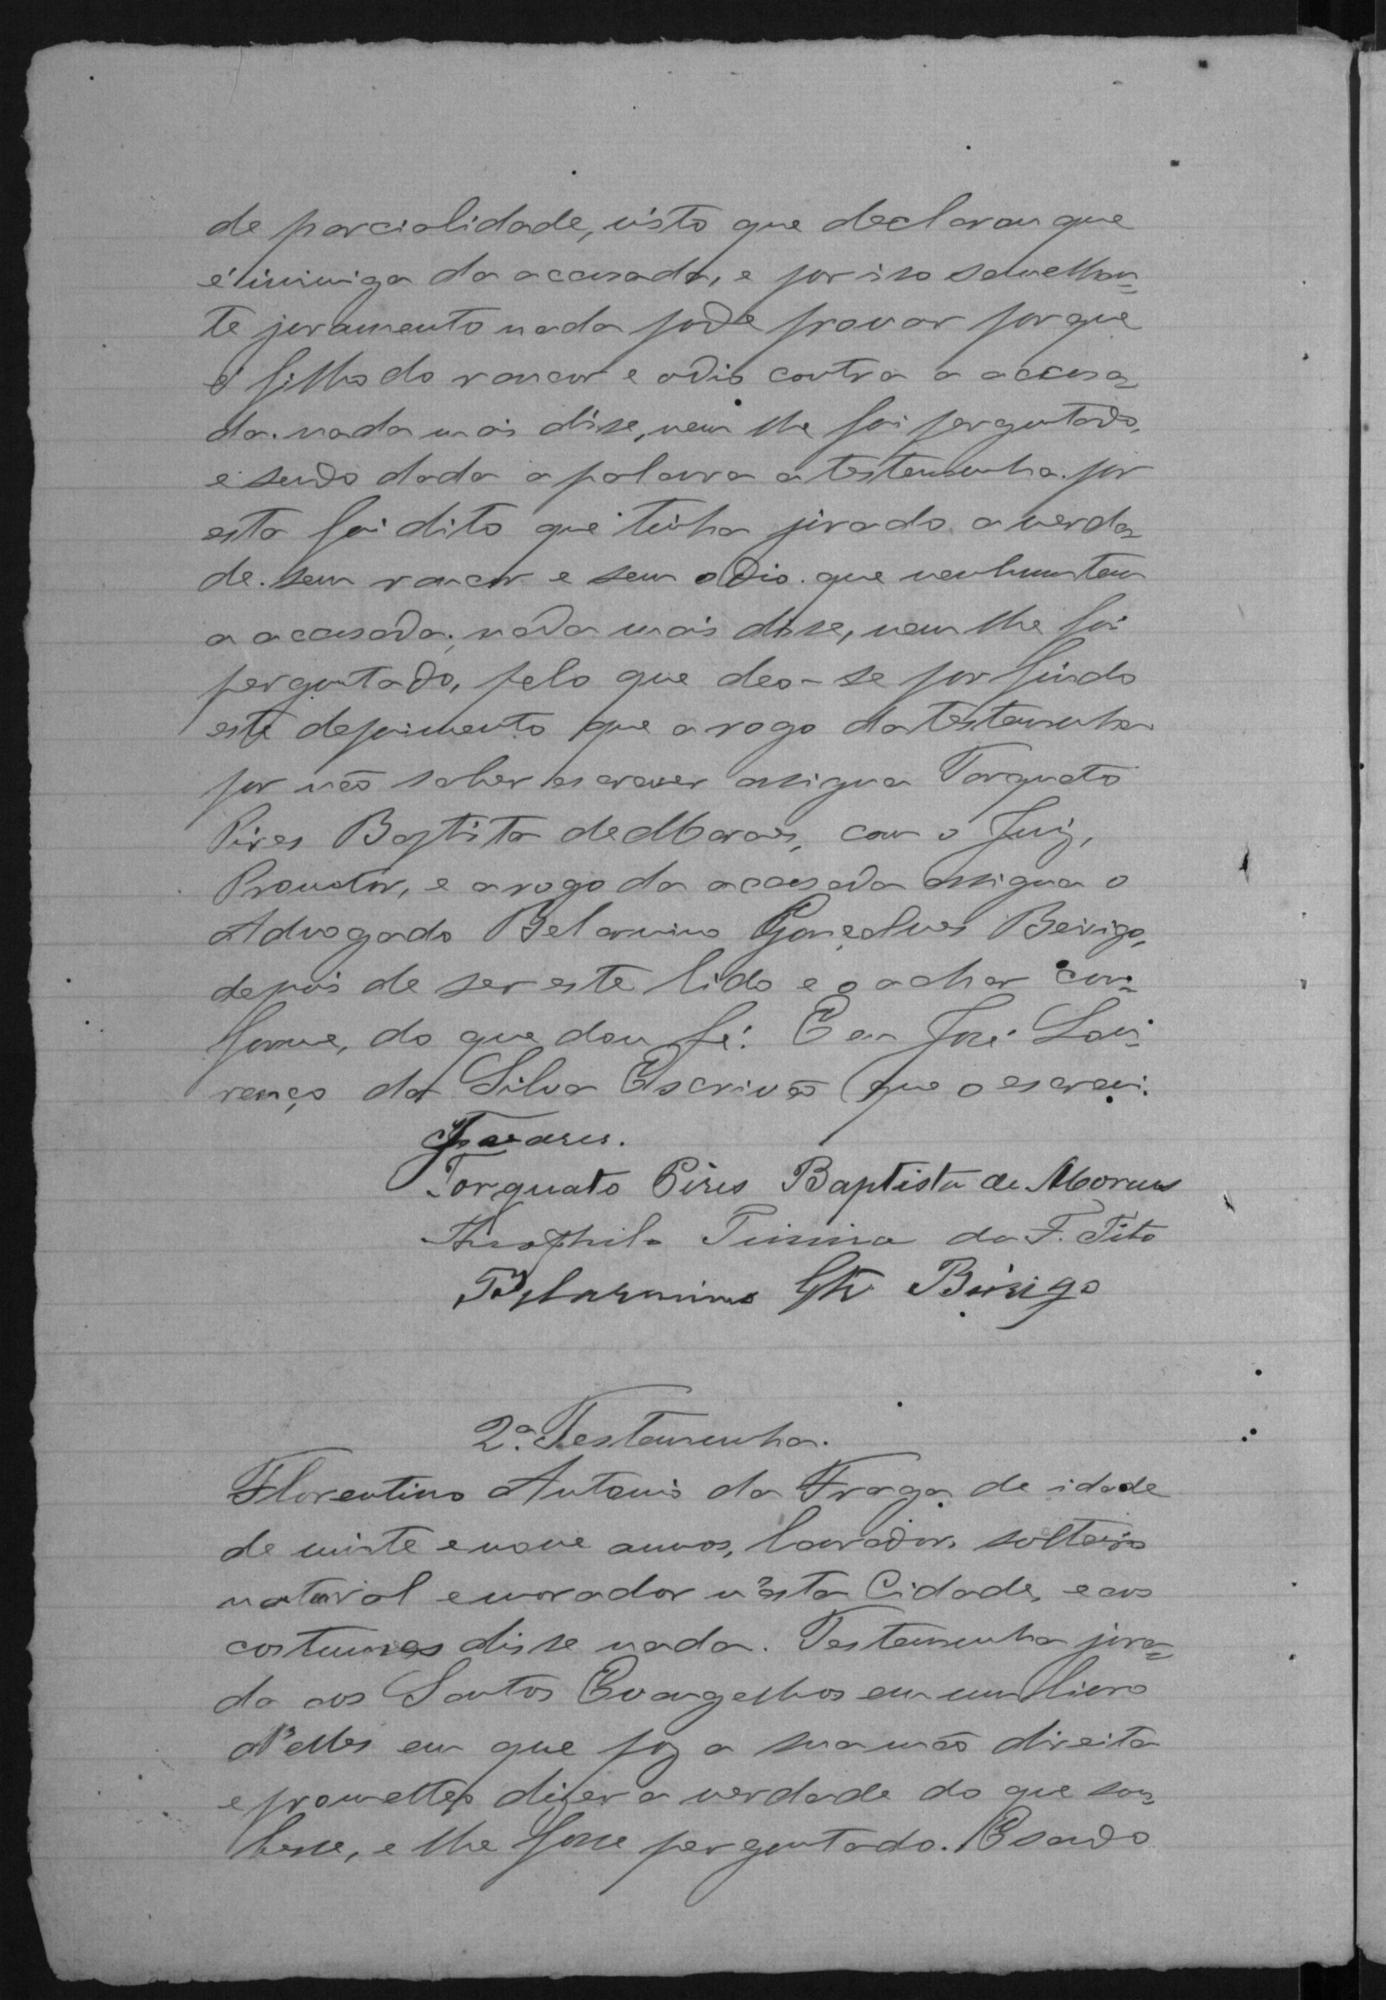 de parcialidade, visto que declarou que
é inimiga da accusada, e por isso semelhan=
te juramento nada pode provar porque
é filho do rancor e odio contra a accusa=
da. nada mais disse, nem lhe foi perguntado,
e sendo dada a palavra a testemunha. por
esta foi dito que tinha jurado a verda=
de. sem rancor e sem odio. que nenhum tem
a accusada; nada mais disse, nem lhe foi
perguntado, pelo que deo-se por findo
este depoimento que a rogo da testemunha
por não saber escrever assigna Torquato
Pires Baptista de Moraes, com o Juiz,
Promotor, e a rogo da accusada assigna o
Advogado Belarmino Gonçalves
depois de ser este lido e o achar con=
forme, do que dou fé. E eu José Lou=
renço da Silva Escrivão que o escrevi.
Tavares.
Torquato Pires Baptista de Moraes
Theophilo da F. Tito
Belarmino Glz
2ª. Testemunha.
Florentino Antonio da Fraga de idade
de vinte e nove annos, lavrador, solteiro
natural e morador n'esta Cidade, e aos
costumes disse nada. Testemunha jura=
da aos Santos Evangelhos em um livro
d'elles em que poz a sua mão direita
e prometteo dizer a verdade do que sou=
besse, e lhe fosse perguntado. E sendo